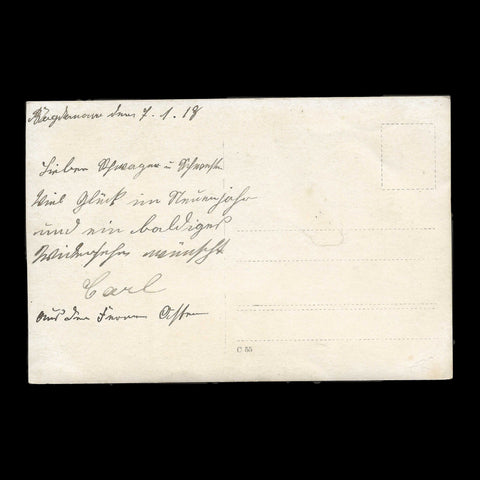 den 7.1.18
Lieber Schwager u Schwester
Viel Glück im Neuenjahr
und ein baldiges
Widersehn wünscht
Carl
aus der Ferne
C 55